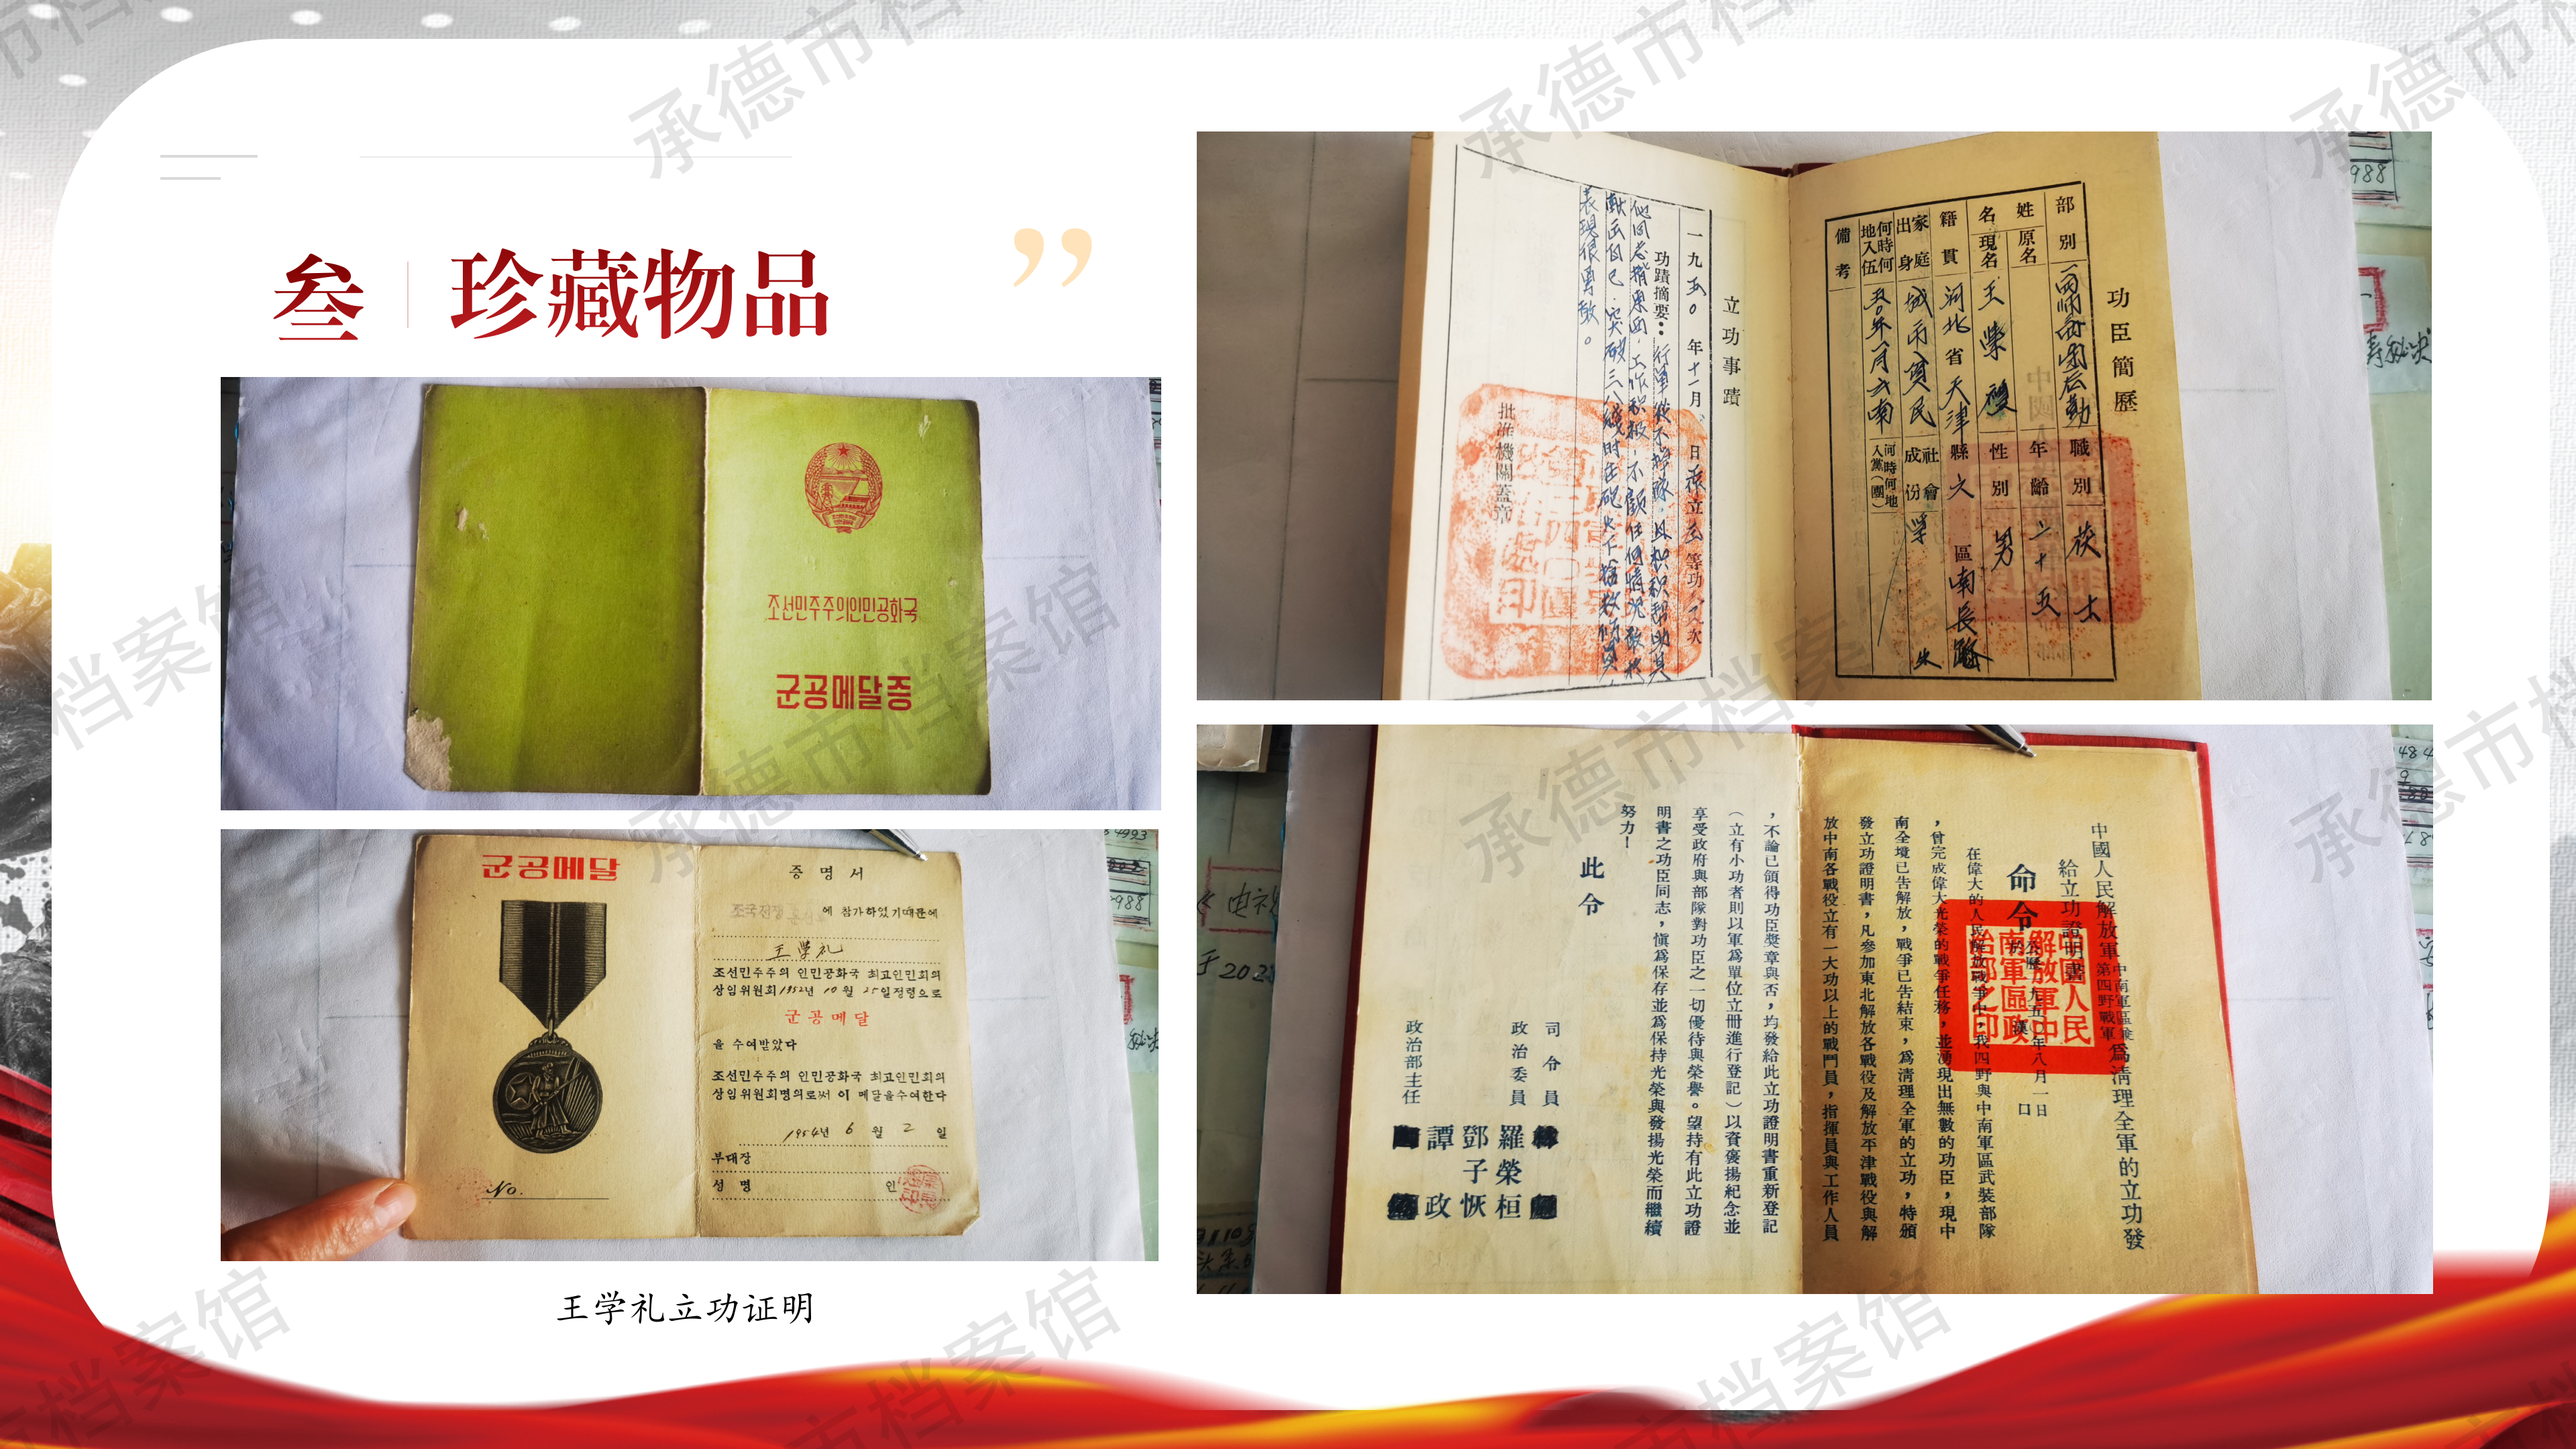 叁
珍藏物品
조선민주주의인민공화국
군공메달증
군공메달
No.
증 명 서
조국전쟁
에 참가하였기때문에
王学礼
조선민주주의 인민공화국 최고인민회의
상임위원회1952년 10월 25일정령으로
군공메달
을 수여받았다
조선민주주의 인민공화국 최고인민회의
상임위원회명의로써 이 메달을수여한다
1954년 6 월 2 일
부대장
성 명
인
王学礼立功证明
功臣簡歷
部別
後勤
職別
姓名
原名
現名
王
年齡
二十五
性別
男
籍貫
河北省天津縣
區南長路
家庭出身
城市貧民
社會成份
學
何時何地入伍
何時何地入黨(團)
備考
立功事蹟
一九五〇年十一月 日
立 等功 次
功蹟摘要：行軍從不掉隊，且积积帮助其
他同志揹東西，工作积极，不顧任何情況敢於
献出自己，突破三八綫時在砲火下搶救傷員，
表現很勇敢。
批准機關蓋章
中國人民解放軍中南軍區兼第四野戰軍爲清理全軍的立功發
給立功證明書
命令
公曆一九五〇年八月一日
於漢口
在偉大的人民解放戰爭中，我四野與中南軍區武裝部隊
，曾完成偉大光榮的戰爭任務，並湧現出無數的功臣，現中
南全境已告解放，戰爭已告結束，爲清理全軍的立功，特頒
發立功證明書，凡參加東北解放各戰役及解放平津戰役與解
放中南各戰役立有一大功以上的戰鬥員，指揮員與工作人員
，不論已領得功臣獎章與否，均發給此立功證明書重新登記
（立有小功者則以軍爲單位立冊進行登記）以資褒揚紀念並
享受政府與部隊對功臣之一切優待與榮譽。望持有此立功證
明書之功臣同志，愼爲保存並爲保持光榮與發揚光榮而繼續
努力！
此令
司令員
政治委員 羅榮桓
鄧子恢
政治部主任 譚政
中國人民
解放軍中
南軍區政
治部之印
承德市档案馆